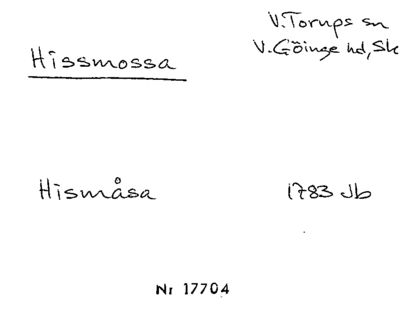 V. Torups sn
Hissmossa
V. Göinge hd, Sk
Hismåsa
1783 Jb
Nr 17704